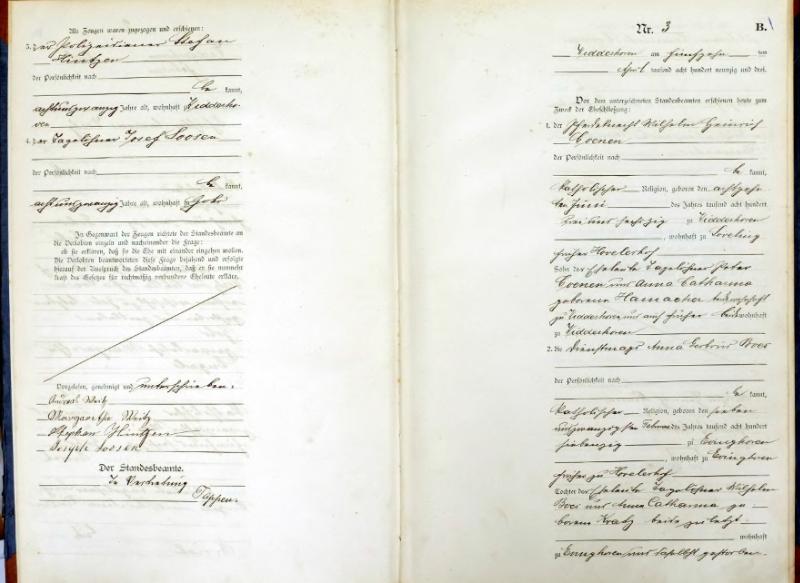 Als Zeugen waren zugezogen und erschienen:
3. der Polizeidiener Stefan
Hintzen
der Persönlichkeit nach
be kannt,
achtundzwanzig Jahre alt, wohnhaft
4. der Tagelöhner Josef Loosen
der Persönlichkeit nach
be kannt,
achtundzwanzig Jahre alt, wohnhaft
In Gegenwart der Zeugen richtete der Standesbeamte an
die Verlobten einzeln und nacheinander die Frage:
ob sie erklären, daß sie die Ehe mit einander eingehen wollen.
Die Verlobten beantworteten diese Frage bejahend und erfolgte
hierauf der Ausspruch des Standesbeamten, daß er sie nunmehr
kraft des Gesetzes für rechtmäßig verbundene Eheleute erkläre.
Vorgelesen, genehmigt und unterschrieben:
Weitz
Margarethe Weitz
Stephan Hintzen
Joseph Loosen
Der Standesbeamte.
In Vertretung
Nr. 3
B.
am fünfzehn ten
April tausend acht hundert neunzig und drei.
Vor dem unterzeichneten Standesbeamten erschienen heute zum
Zweck der Eheschließung:
1. der Pferdeknecht Wilhelm Heinrich
Coenen
der Persönlichkeit nach
be kannt,
katholischer Religion, geboren den achtzehn
ten Juni des Jahres tausend acht hundert
zu
, wohnhaft zu
früher Hovelerhof
Sohn der Eheleute Tagelöhner Peter
Coenen und Anna Catharina
geborene Hamacher
zu und auch früher wohnhaft
zu
2. die Dienstmagd Anna Gertrud Boes
der Persönlichkeit nach
be kannt,
katholischer Religion, geboren den sieben
undzwanzigsten Februar des Jahres tausend acht hundert
siebenzig zu
, wohnhaft zu
früher zu Hovelerhof
Tochter der Eheleute Tagelöhner Wilhelm
Boes und Anna Catharina ge-
borene Kratz beide zuletzt
wohnhaft
zu und daselbst gestorben.